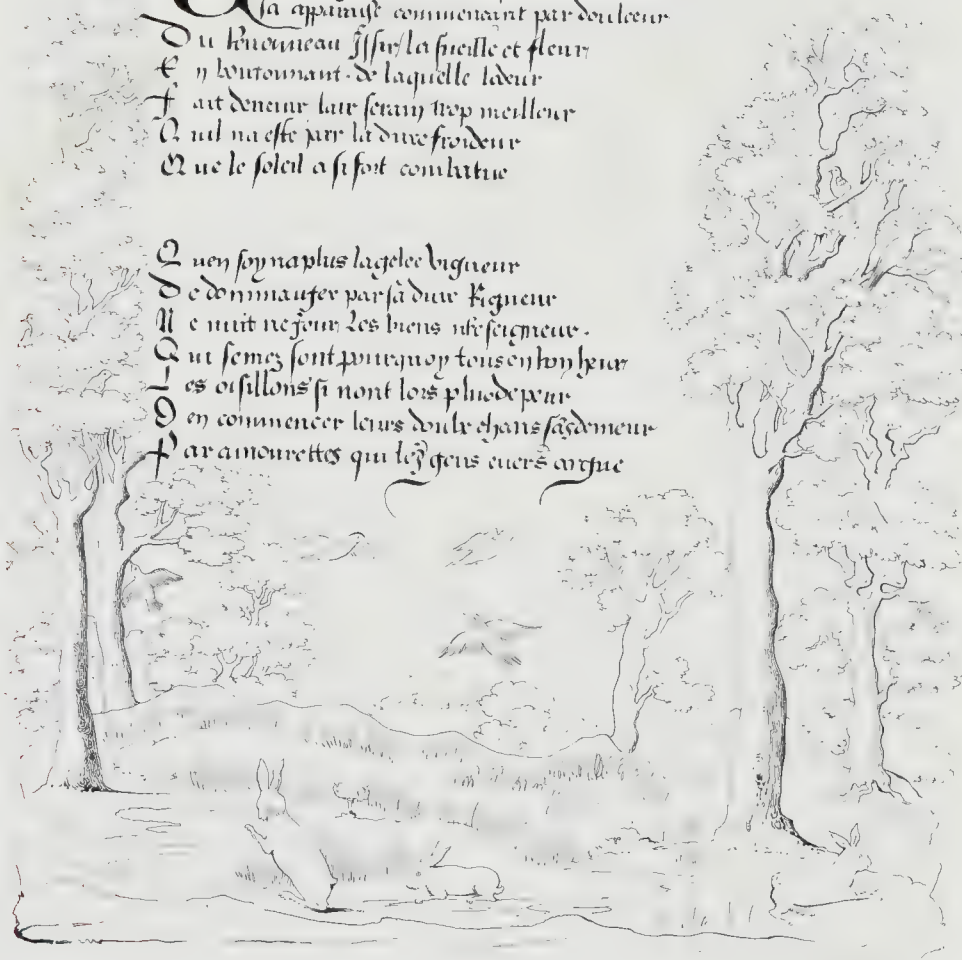 sa apparuist commencant par doulceur
Du Renouneau Issir la fueille et fleur
En boutonnant de laquelle lodeur
Fait deuenir lair serain trop meilleur
Quil na este par la dure froideur
Que le soleil a si fort combatue
Quen soy na plus la gelee vigueur
De dommaiger par sa dure Rigueur
Ne nuit ne Jour Les biens nre seigneur.
Qui semez sont pourquoy tous en bon heur
Les oisillons si nont lors plus de peur
Den commencer leurs doulx chans sãs demeur
Par amourettes qui lez gens enuers argue